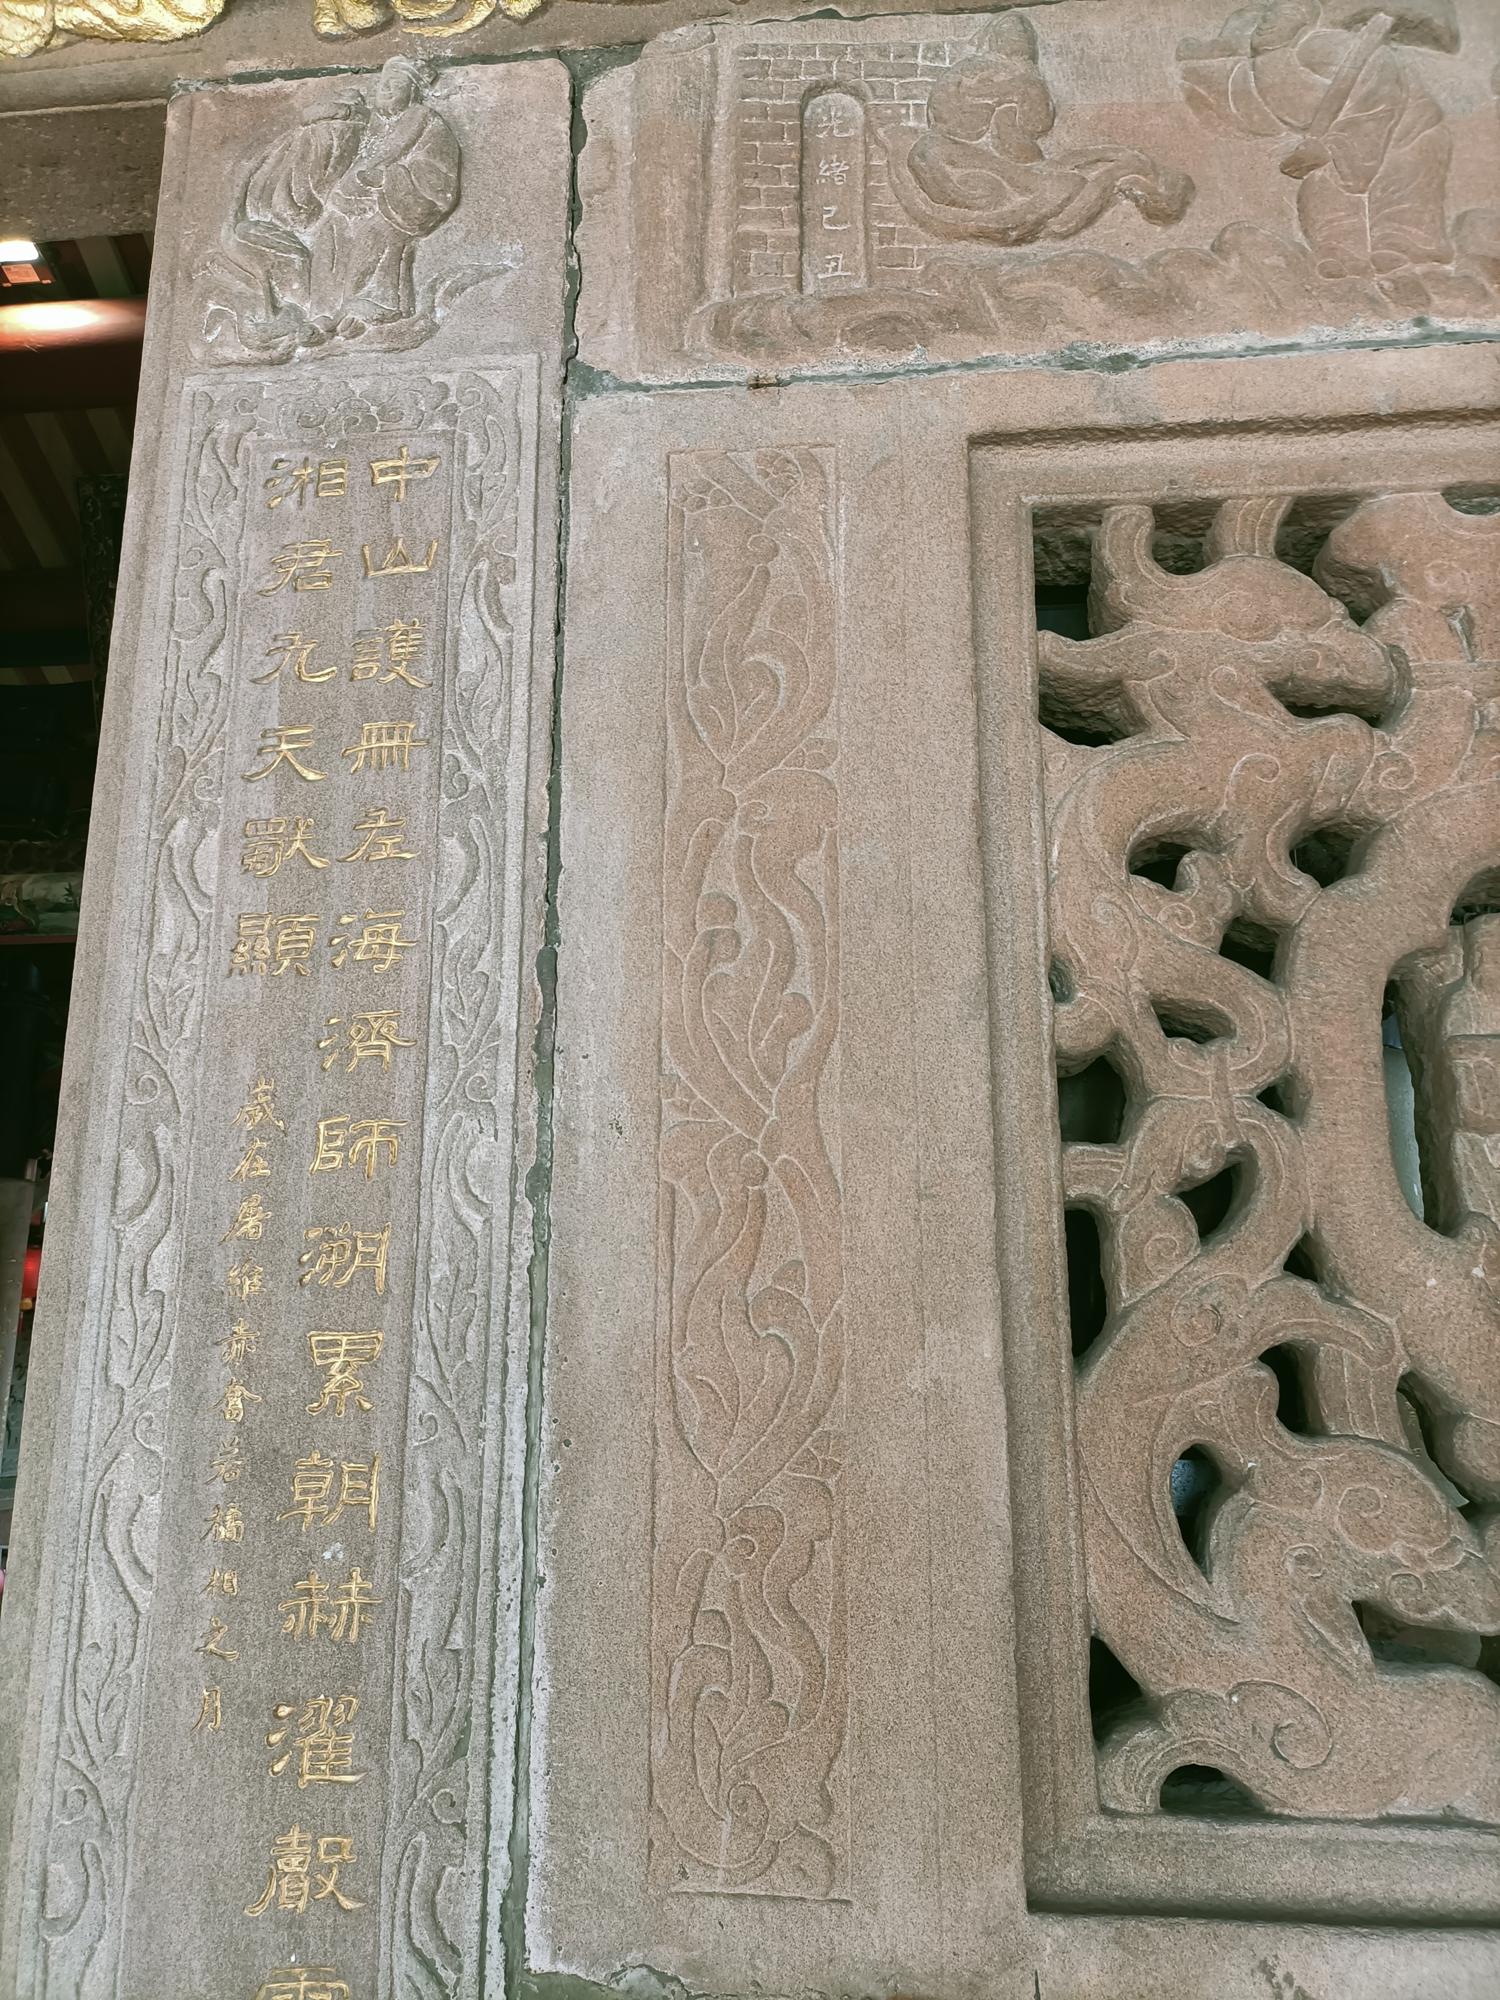 光緒己丑
中山護冊左海濟師溯累朝赫濯聲
湘君九天顯
歲在屠維赤奮若橘相之月